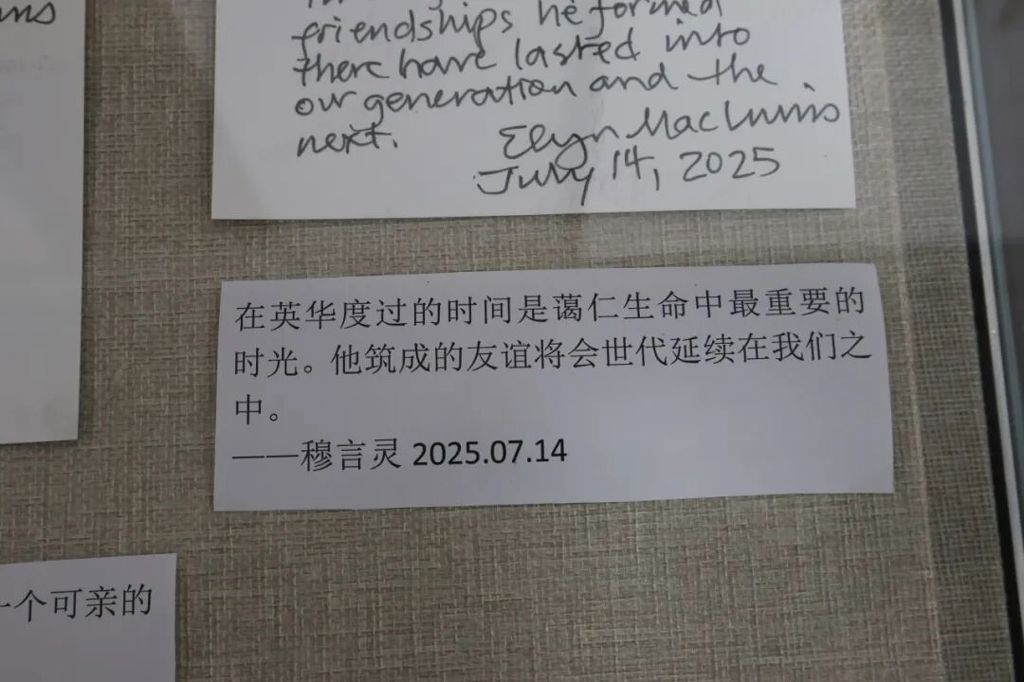 friendships he formed
there have lasted into
our generation and the
next.
Elyn MacInnis
July 14, 2025
在英华度过的时间是蔼仁生命中最重要的
时光。他筑成的友谊将会世代延续在我们之
中。
——穆言灵 2025.07.14
一个可亲的